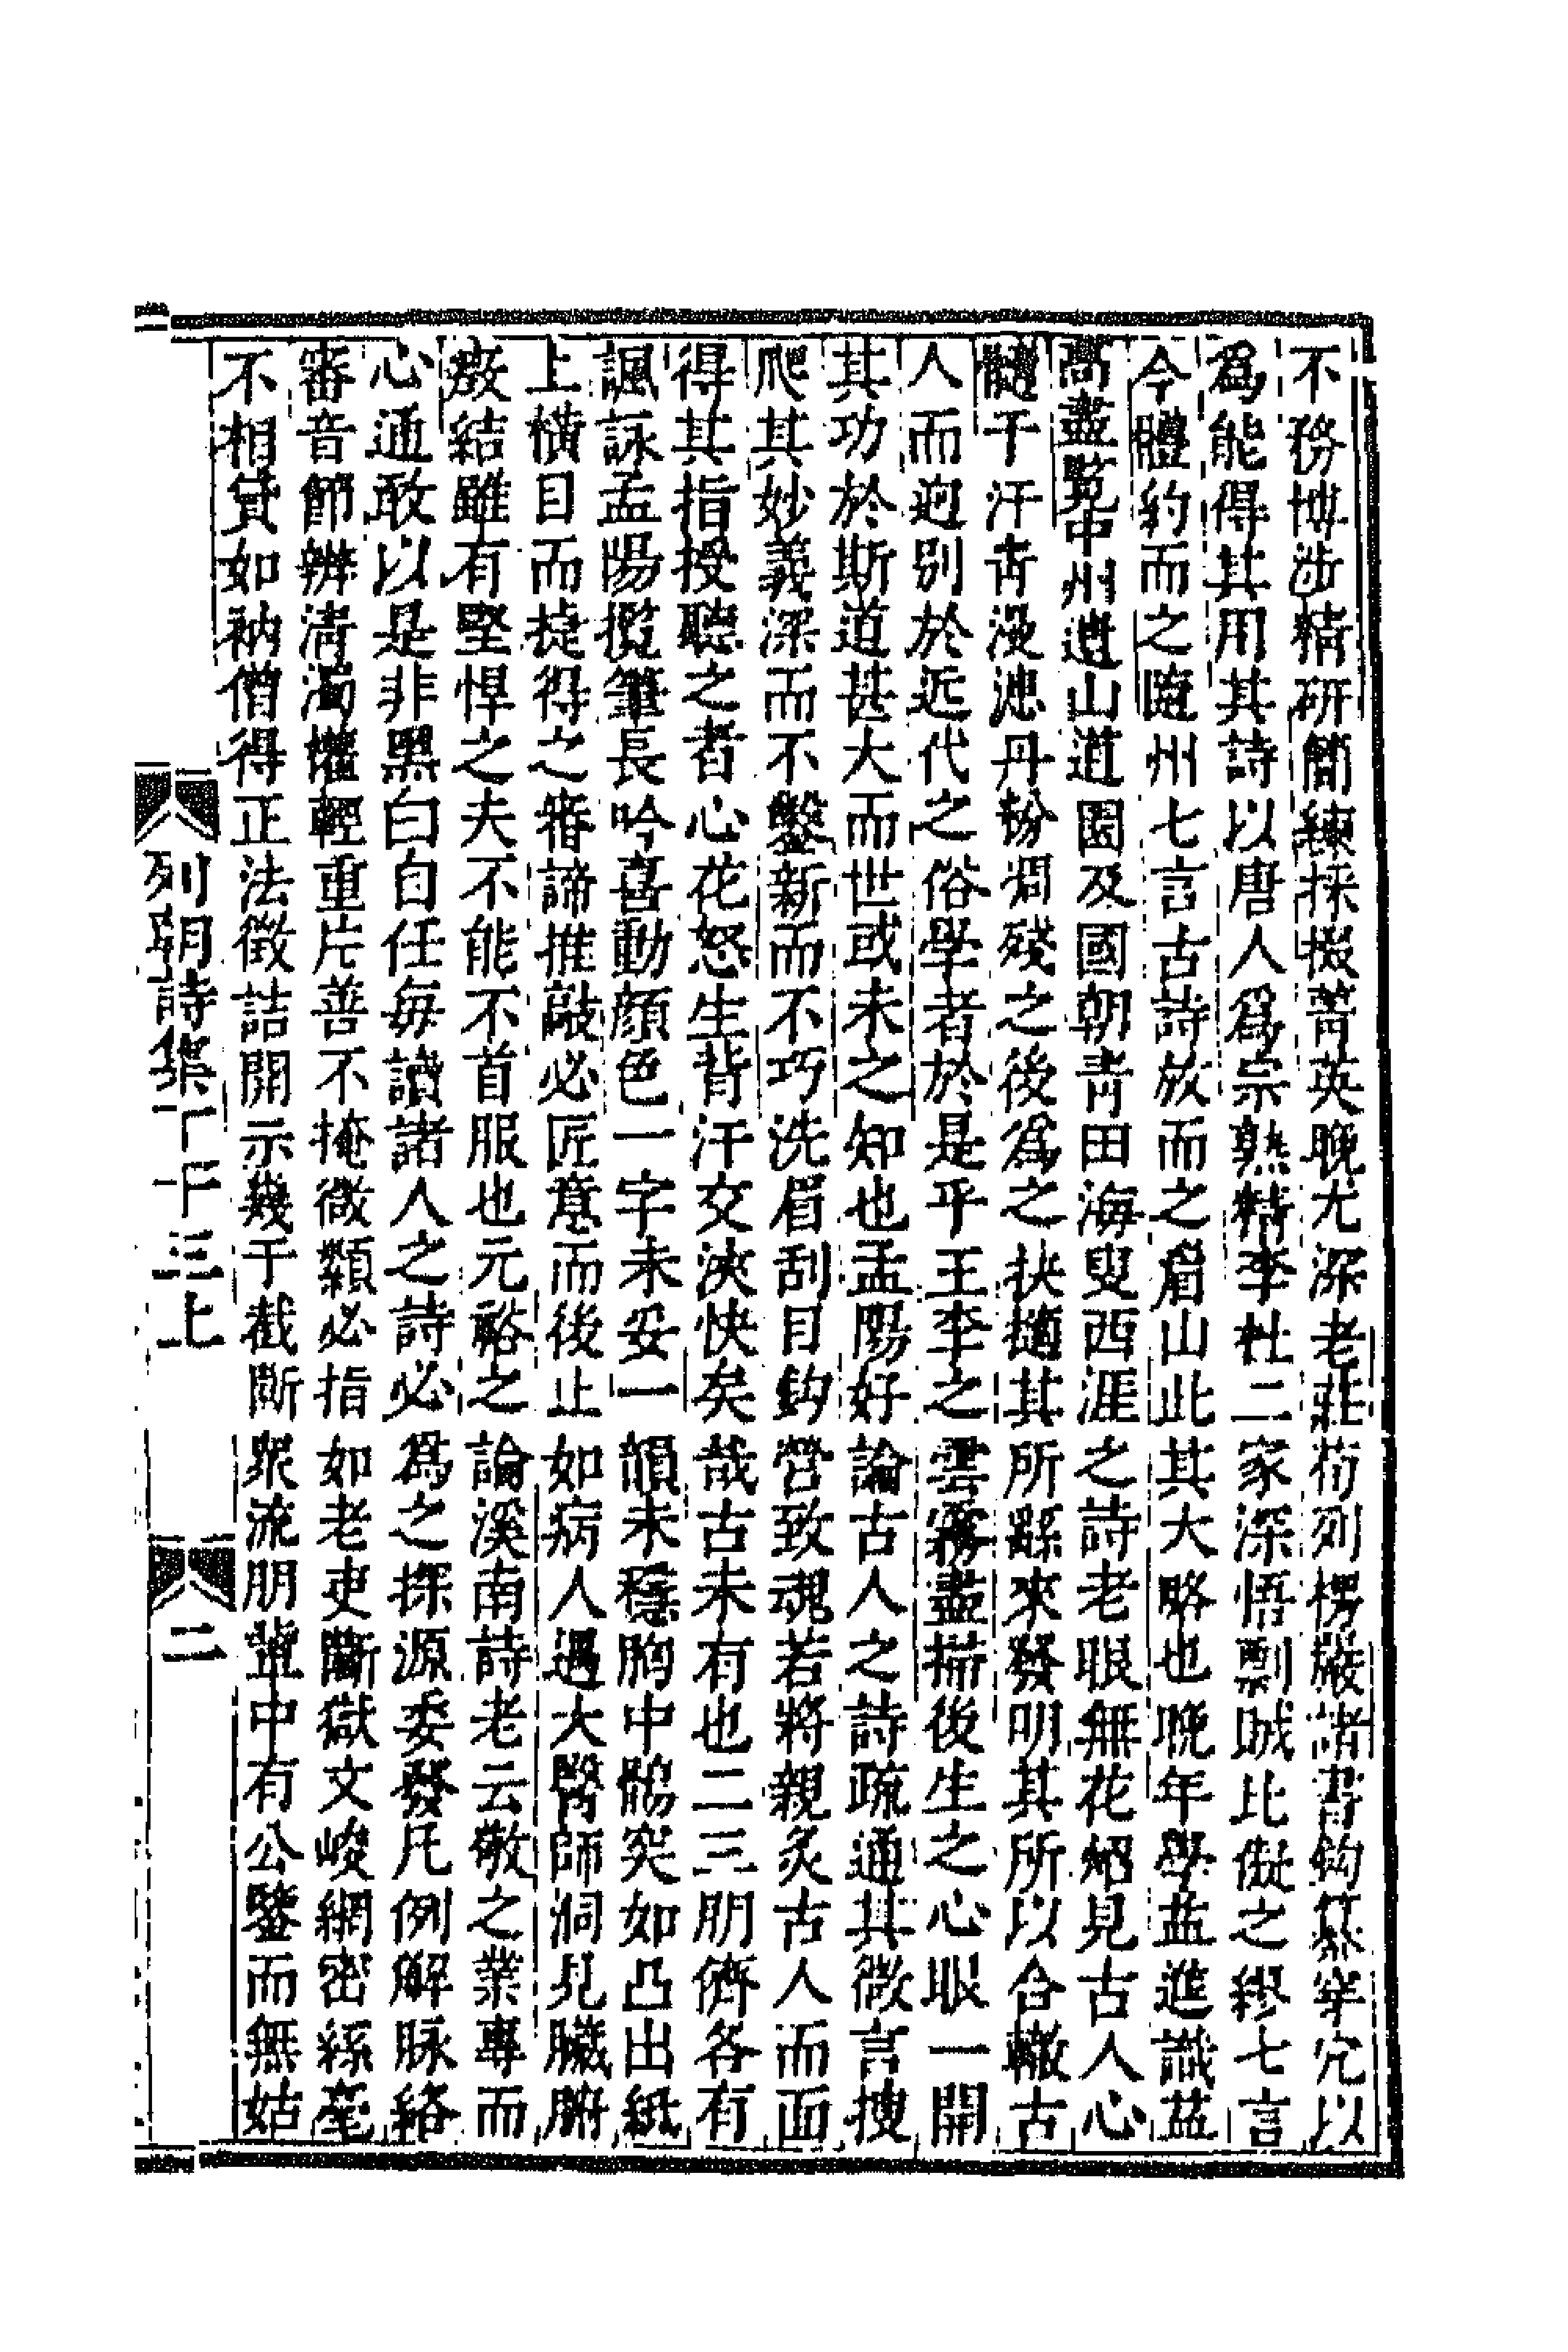 不務博涉精研簡練採掇菁英晚尤深老莊荀列楞嚴諸書鈎纂穿穴以
爲能得其用其詩以唐人爲宗熟精李杜二家深悟剽賊比儗之繆七言
今體約而之隨州七言古詩放而之眉山此其大略也晚年學益進識益
高盡覽中州遺山道園及國朝青田海叟西涯之詩老眼無花炤見古人心
髓于汗青漫漶丹粉凋殘之後爲之抉擿其所繇來發明其所以合轍古
人而迥別於近代之俗學者於是乎王李之雲霧盡掃後生之心眼一開
其功於斯道甚大而世或未之知也孟陽好論古人之詩疏通其微言搜
爬其妙義深而不鑿新而不巧洗眉刮目鈎營致魂若將親炙古人而面
得其指授聽之者心花怒生背汗交浹快矣哉古未有也二三朋儕各有
諷詠孟陽攬筆長吟喜動顏色一字未妥一韻未穩胸中鶻突如凸出紙
上橫目而捷得之瘖諦推敲必匠意而後止如病人遇大醫師洞見臟腑
癥結雖有堅悍之夫不能不首服也元裕之論溪南詩老云敬之業專而
心通敢以是非黑白自任每讀諸人之詩必爲之探源委發凡例解脉絡
審音節辨清濁權輕重片善不掩微纇必指如老吏斷獄文峻網密絲毫
不相貸如衲僧得正法徵詰開示幾于截斷衆流朋輩中有公鑒而無姑
列朝詩集丁十三上
二